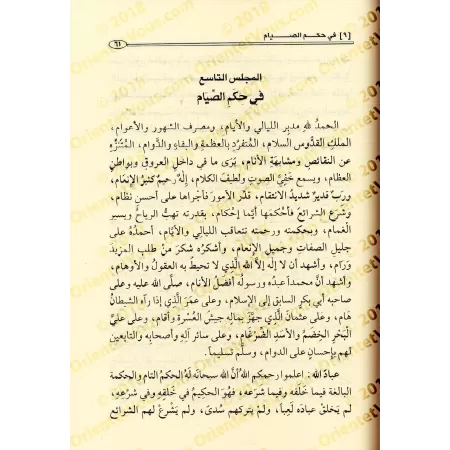 [٩] في حكم الصيام
٦١
المجلس التاسع
في حكم الصِّيَام
الحمدُ للهِ مدبِر الليالي والأيام، ومصرف الشهور والأعوام،
الملكِ القدُّوس السلام، المتفرِّد بالعظمةِ والبقاءِ والدَّوام، المتنزِّهِ
عن النقائصِ ومشابهةِ الأنام، يَرَى ما في داخلِ العروق وبواطنِ
العظام، ويسمع خَفِيَّ الصوتِ ولطيفَ الكلام، إلهٌ رحيمٌ كثيرُ الإِنعام،
وربٌ قديرٌ شديدُ الانتقام، قدَّر الأمورَ فأجراها على أحسنِ نظام،
وشَرَع الشرائعَ فأحْكمَها أيَّما إحْكام، بقدرته تهبُّ الرياحُ ويسير
الغمام، وبحكمته ورحمته تتعاقب الليالي والأيام، أحمدُهُ على
جليلِ الصفاتِ وجميلِ الإِنعام، وأشكرُه شكرَ منْ طلب المزيدَ
وَرَام، وأشهد أن لا إله إلَّا الله الَّذِي لا تحيطُ به العقولُ والأوهام،
وأشهد أنَّ محمداً عبدُه ورسولُه أفضلُ الأنام، صلَّى الله عليه وعلى
صاحبه أبي بكرٍ السابق إلى الإِسلام، وعلى عمَرَ الَّذِي إذا رآه الشيطانُ
هَام، وعلى عثمانَ الَّذي جهَّزَ بمالِه جيشَ العُسْرةِ وأقام، وعلى عليٍّ
الْبَحْرِ الخِضَمِّ والأسَدِ الضِّرْغَام، وعلى سائر آلِهِ وأصحابِه والتابعين
لهم بإحسانٍ على الدوام، وسلَّم تسليماً.
عبادَ الله: اعلموا رحمكم الله أنَّ الله سبحانَه لَهُ الحكمُ التام والحكمة
البالغة فيما خلَقه وفيما شرعَه، فهو الحكيمُ في خَلقِه وفي شرْعِه،
لم يَخلقْ عبادَه لَعِباً، ولَمْ يتركهم سُدىً، ولم يَشْرعْ لهم الشرائع